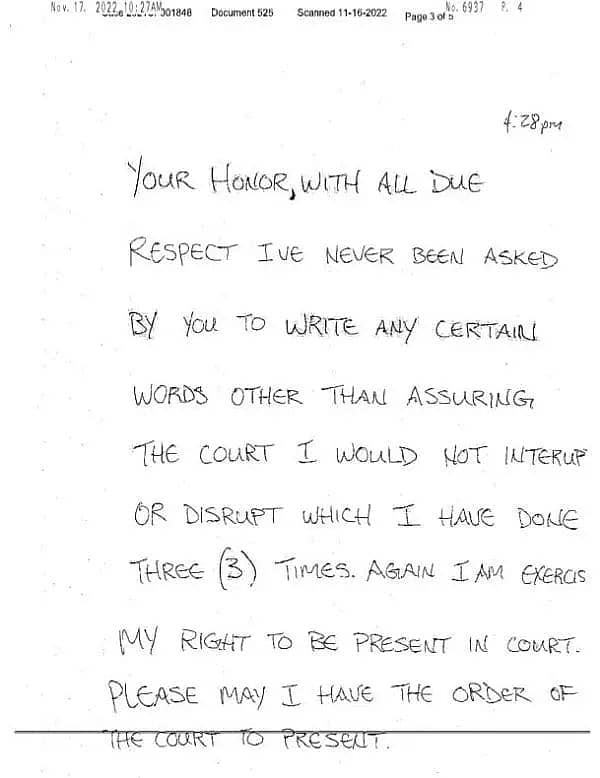 Nov. 17. 2022 10:27AM 001848 Document 525 Scanned 11-16-2022 Page 3 of 5 No. 6937 P. 4
4:28pm
YOUR HONOR, WITH ALL DUE
RESPECT I VE NEVER BEEN ASKED
BY YOU TO WRITE ANY CERTAIN
WORDS OTHER THAN ASSURING
THE COURT I WOULD NOT INTERUP
OR DISRUPT WHICH I HAVE DONE
THREE (3) TIMES. AGAIN I AM EXERCIS
MY RIGHT TO BE PRESENT IN COURT.
PLEASE MAY I HAVE THE ORDER OF
THE COURT TO PRESENT.